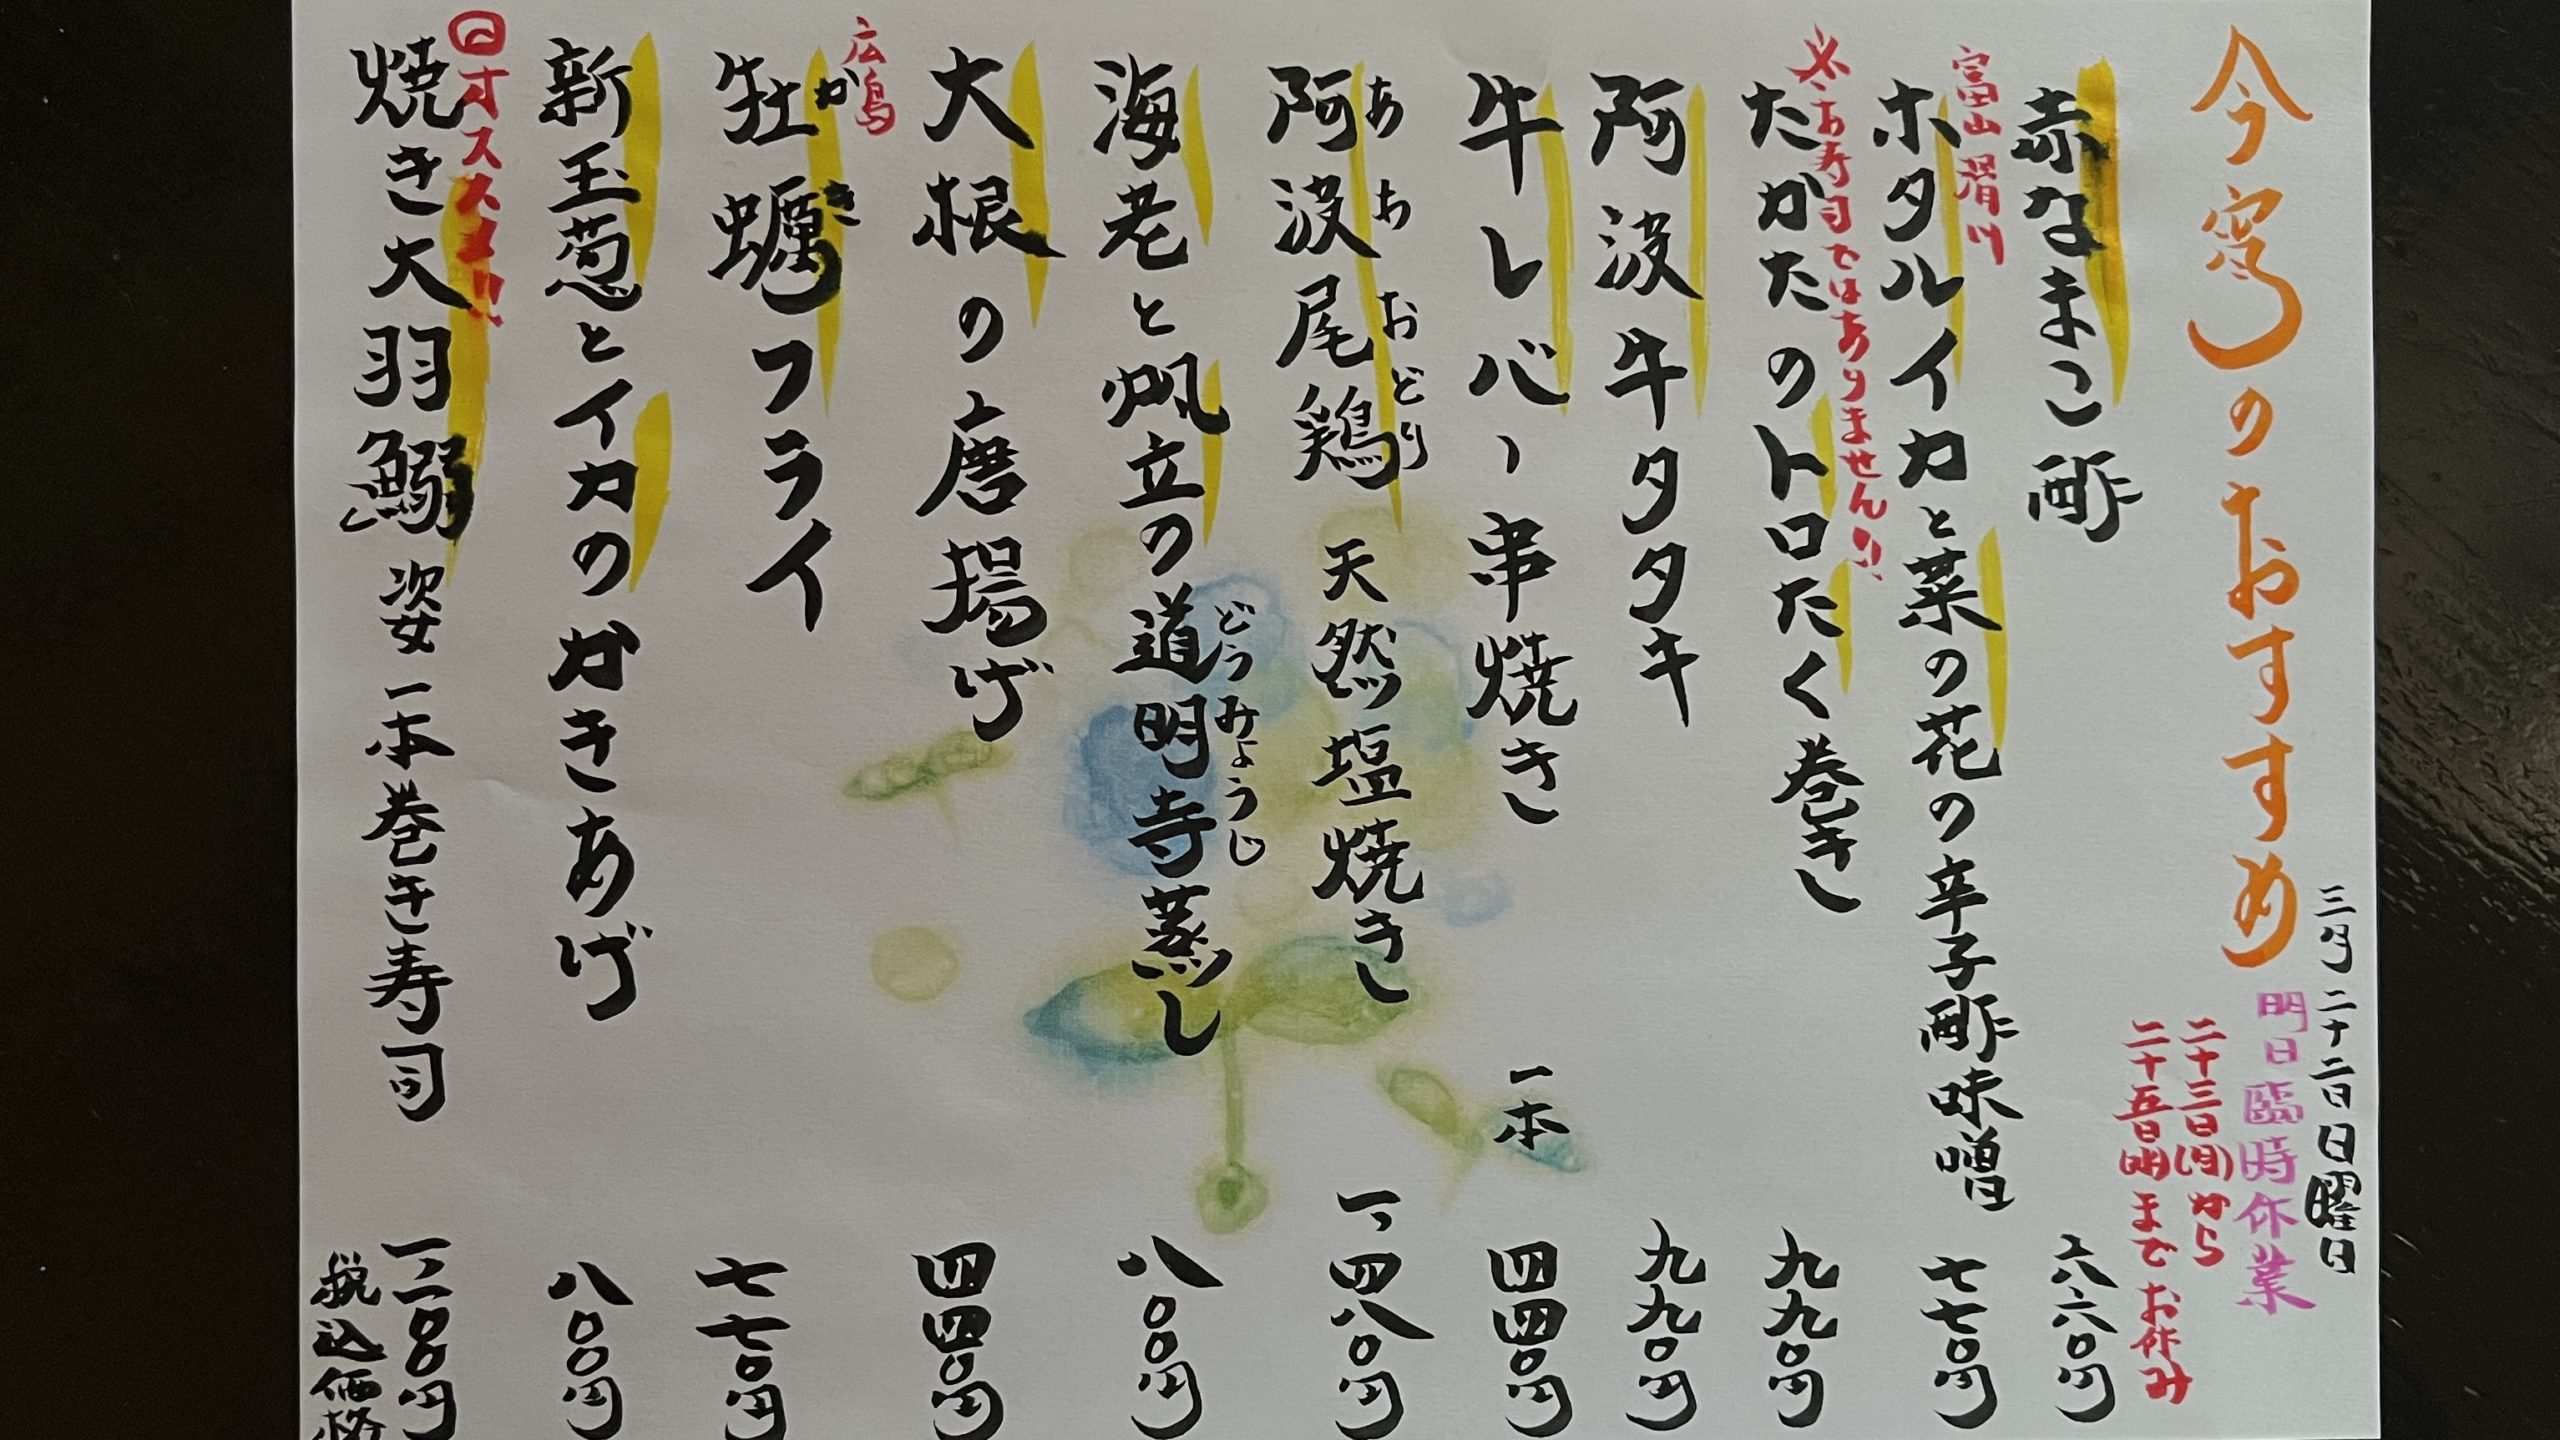 今宵のおすすめ
三月二十二日日曜日
明日臨時休業
二十三日(月)から
二十五日(水)までお休み
赤なまこ酢 六六〇円
富山滑川
ホタルイカと菜の花の辛子酢味噌 七七〇円
※お寿司ではありません!!
たかたのトロたく巻き 九九〇円
阿波牛タタキ 九九〇円
牛レバー串焼き 一本 四四〇円
あわおどり
阿波尾鶏 天然塩焼き 一、四八〇円
どうみょうじ
海老と帆立の道明寺蒸し 八〇〇円
大根の唐揚げ 四四〇円
広島
かき
牡蠣フライ 七七〇円
新玉葱とイカのかきあげ 八〇〇円
オススメ!!
焼き大羽鰯 姿一本巻き寿司 一二〇〇円
税込価格